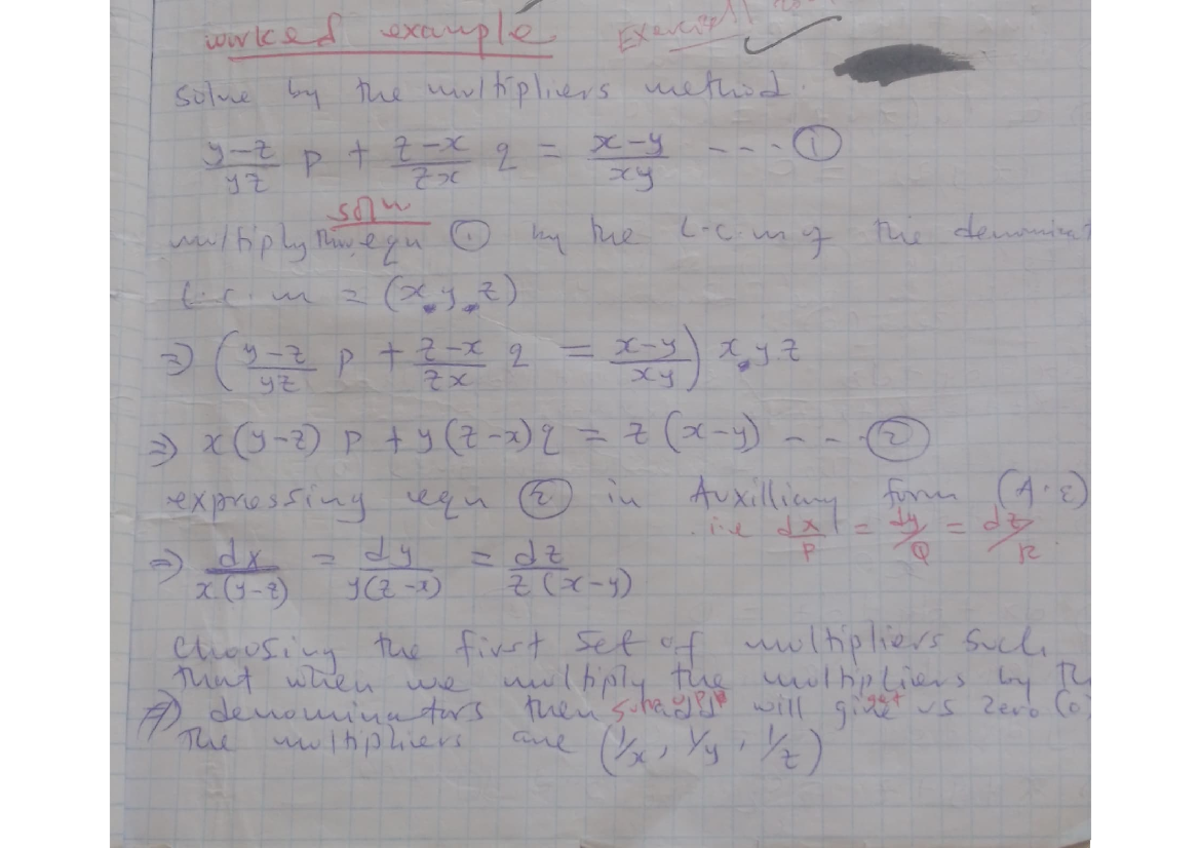 worked example
solve by the multipliers method.
y-z/yz p + z-x/zx q = x-y/xy --- ①
soln
multiply thru equ ① by the L.c.m of the denominat
L.c.m = (x.y.z)
⇒ (y-z/yz p + z-x/zx q = x-y/xy) x.yz
⇒ x(y-z) p + y(z-x)q = z(x-y) --- ②
expressing equ ② in Auxilliary form (A.E)
i.e dx/P = dy/Q = dz/R
⇒ dx/x(y-z) = dy/y(z-x) = dz/z(x-y)
choosing the first set of multipliers such
that when we multiply the multipliers by th
denominators then will give us zero (0)
The multipliers are (1/x, 1/y, 1/z)